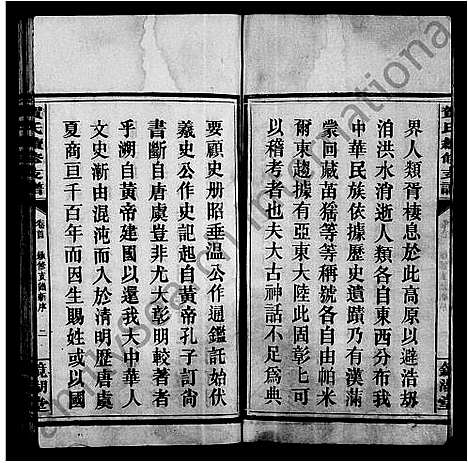 界人類胥棲息於此高原以避浩刼
洎洪水消逝人類各自東西分布我
中華民族依據歷史遺蹟乃有漢滿
蒙回藏苗猺等等稱號各自由帕米
爾東趨據有亞東大陸此固彰七可
以稽考者也夫大古神話不足爲典
要顧史册昭垂温公作通鑑託始伏
羲史公作史記起自黃帝孔子訂尙
書斷自唐虞豈非尤大彰明較著者
乎溯自黃帝建國以還我大中華人
文史漸由混沌而入於清明歷唐虞
夏商亘千百年而因生賜姓或以國
賀氏續修支譜
卷首
二
鏡湖堂
familysearch international